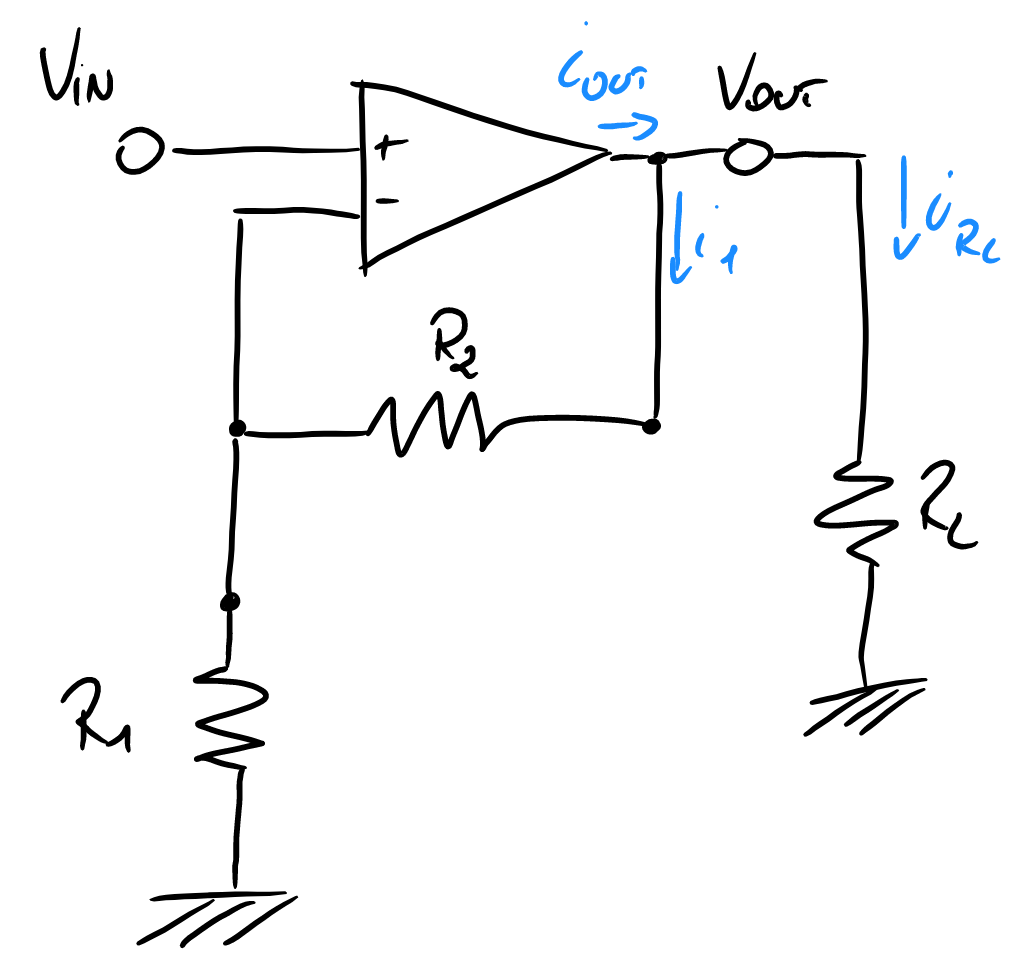 VIN
iOUT
VOUT
+
-
i1
iRL
R2
RL
R1